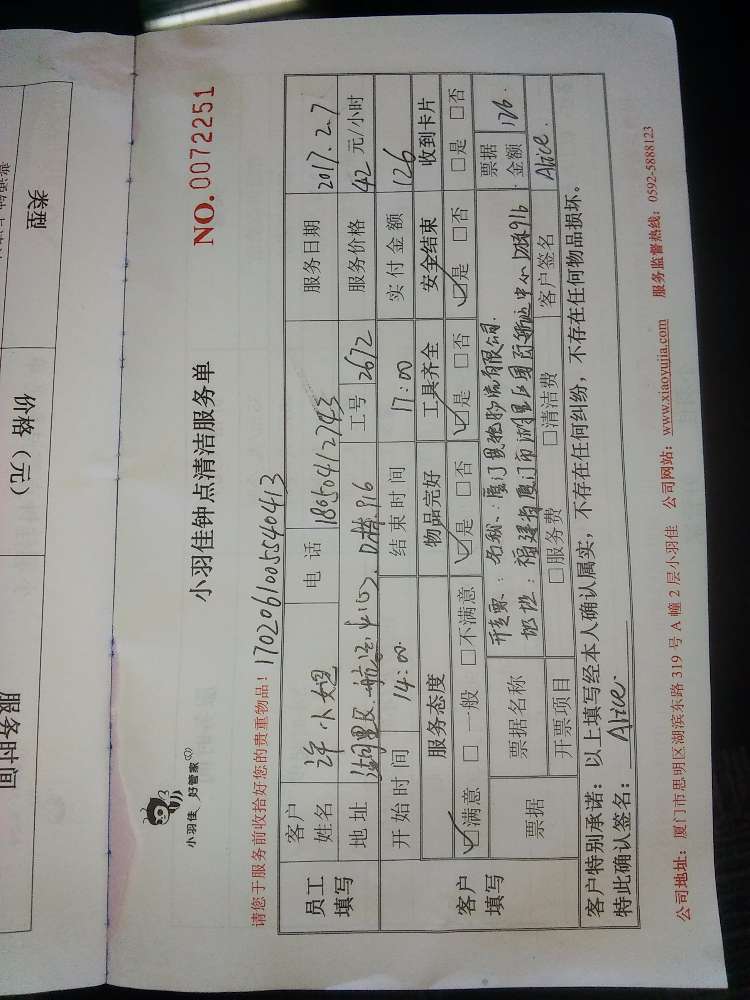 小羽佳 好管家
小羽佳钟点清洁服务单
NO. 0072251
请您于服务前收拾好您的贵重物品！ 1702061005540413
员工填写
客户姓名 许小姐 电话 18050412743 服务日期 2017.2.7
地址 湖里区航运中心D栋916 工号 2672 服务价格 42 元/小时
开始时间 14:00 结束时间 17:00 实付金额 126
客户填写
服务态度 物品完好 工具齐全 安全结束 收到卡片
☑满意 □一般 □不满意 ☑是 □否 ☑是 □否 ☑是 □否 □是 □否
票据 票据名称 开专票：名称：厦门 物流有限公司.
地址：福建省厦门市湖里区国际航运中心D栋916
票据金额 126.
开票项目 □服务费 □清洁费 客户签名 Alice.
客户特别承诺：以上填写经本人确认属实，不存在任何纠纷，不存在任何物品损坏。
特此确认签名： Alice.
公司地址：厦门市思明区湖滨东路 319 号 A 幢 2 层小羽佳 公司网站：www.xiaoyujia.com 服务监督热线：0592-5888123
类型
价格（元）
服务时间